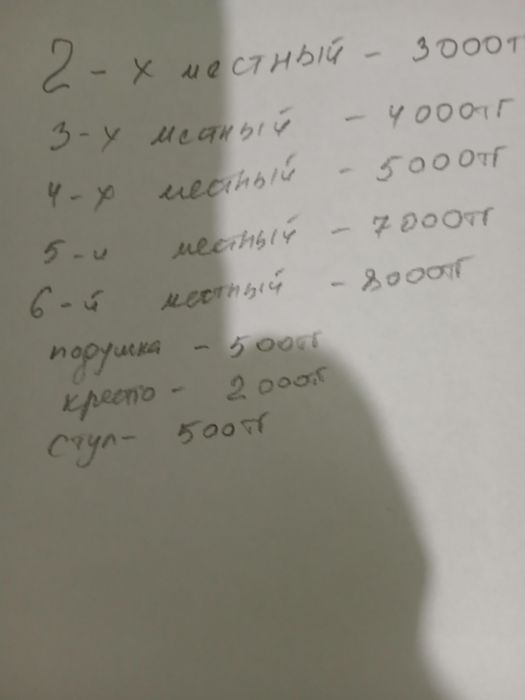 2-х местный - 3000тг
3-х мстный - 4000тг
4-х местный - 5000тг
5-и местный - 7000тг
6-й местный - 8000тг
подушка - 500тг
кресло - 2000тг
стул- 500тг